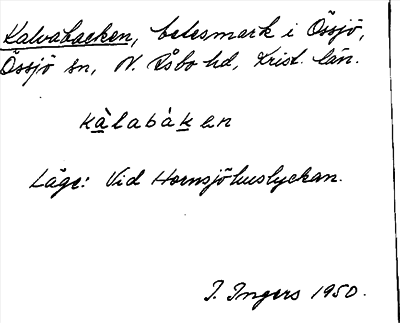 Kalvabacken, betesmark i Össjö,
Össjö sn, N. Åsbo hd, Krist. län.
kàlabàken
Läge: Vid Hornsjöhuslyckan.
I. Ingers 1950.